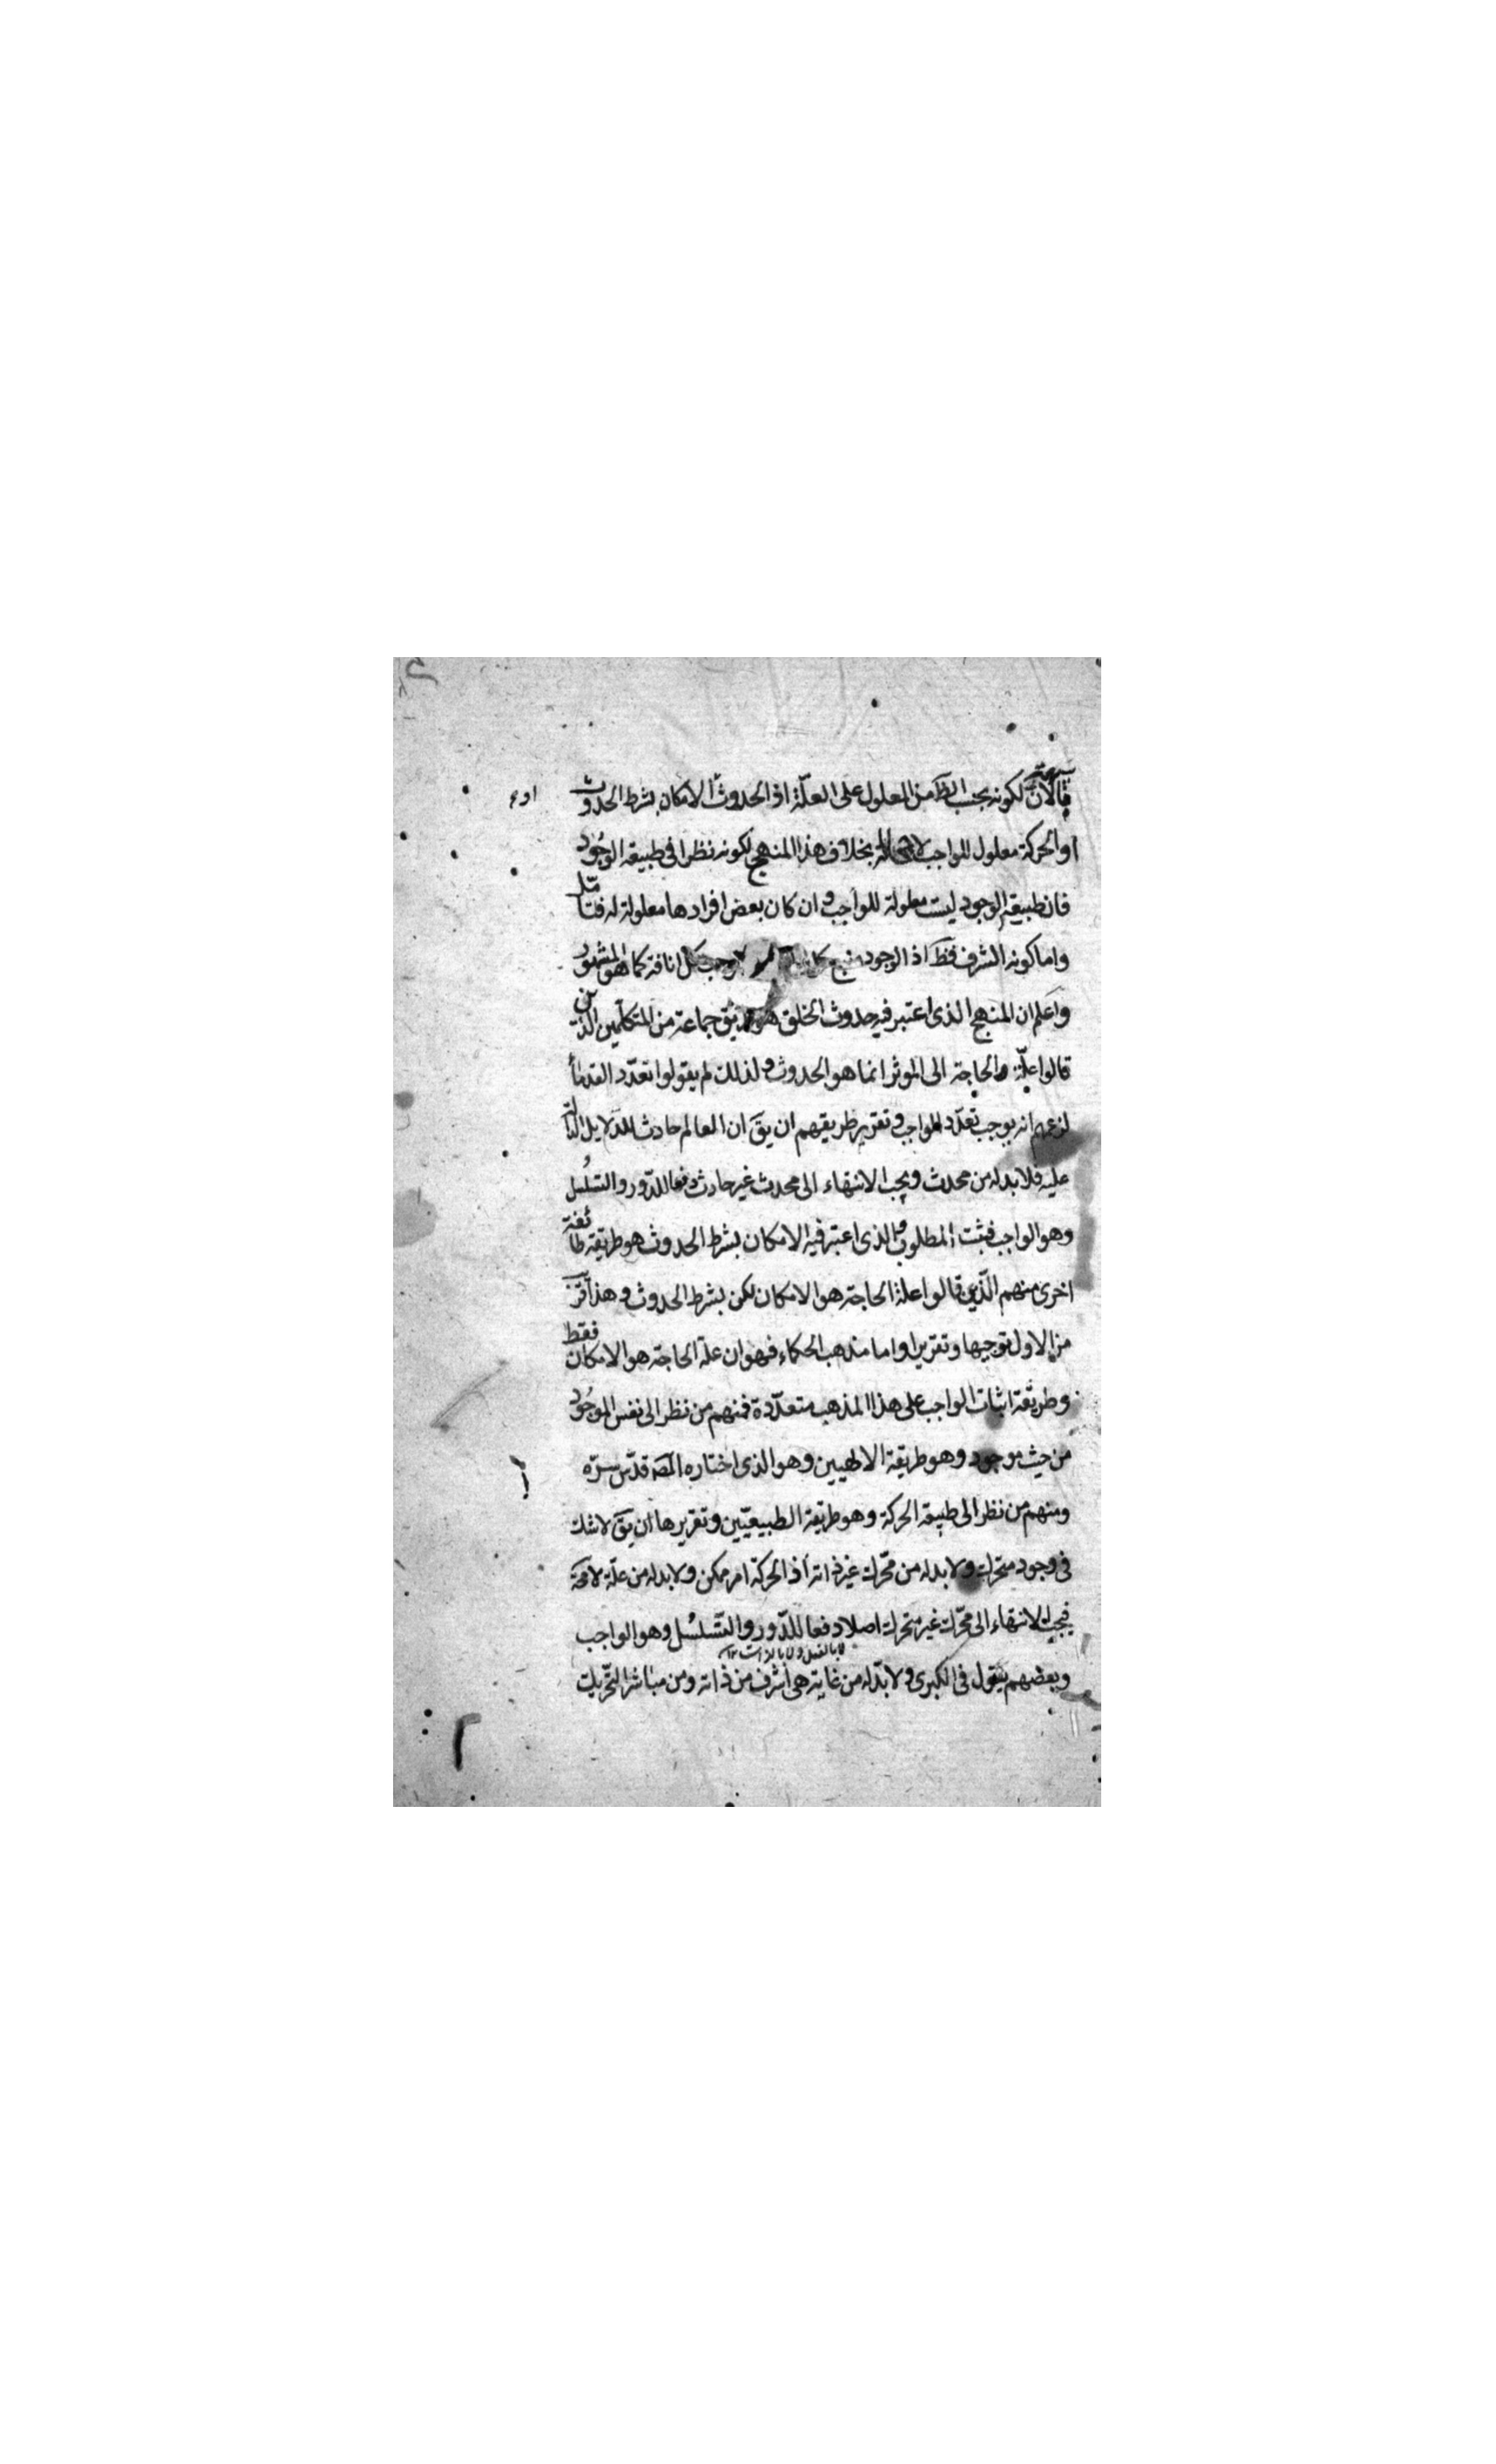 فالآن لكونه بحسب الظ من المعلول على العلّة اذ الحدوث او الامكان بشرط الحدوث
او الحركة معلول للواجب لا محالة بخلاف هذا المنهج لكونه نظرا فى طبيعة الوجود
فان طبيعة الوجود ليست معلولة للواجب وان كان بعض افرادها معلولة له فتأمّل
واما كونه اشرف فظ اذ الوجود منبع كل انافة كما هو المشهور
واعلم ان المنهج الذى اعتبر فيه حدوث الخلق هو طريق جماعة من المتكلّمين الذين
قالوا علّة الحاجة الى الموثر انما هو الحدوث ولذلك لم يقولوا بتعدّد القدماء
لزعمهم انه يوجب تعدّد الواجب وتقرير طريقهم ان يق ان العالم حادث للدّلايل الدّالة
عليه فلا بد له من محدث ويجب الانتهاء الى محدث غير حادث دفعا للدّور والتسلسُل
وهو الواجب فثبت المطلوب والذى اعتبر فيه الامكان بشرط الحدوث هو طريقة طائفة
اخرى منهم الّذين قالوا علة الحاجة هو الامكان لكن بشرط الحدوث وهذا قريب
من الاول توجيها وتقريرا واما مذهب الحكماء فهو ان علة الحاجة هو الامكان فقط
وطريقة اثبات الواجب على هذا المذهب متعدّدة فمنهم من نظر الى نفس الموجُود
من حيث موجود وهو طريقة الالهيين وهو الذى اختاره المص قدّس سرّه
ومنهم من نظر الى طبيعة الحركة وهو طريقة الطبيعيّين وتقريرها ان يق لا شك
فى وجود متحرك ولا بد له من محّرك غير ذاته اذ الحركة امر ممكن ولا بد له من علّة لا محة
فيجب الانتهاء الى محّرك غير متحرك اصلا دفعا للدّور والتّسلسُل وهو الواجب
لا بالفعل ولا بالذات ١٢
وبعضهم يقول فى الكبرى ولا بدّ له من غاية هى اشرف من ذاته ومن مباشر التحريك